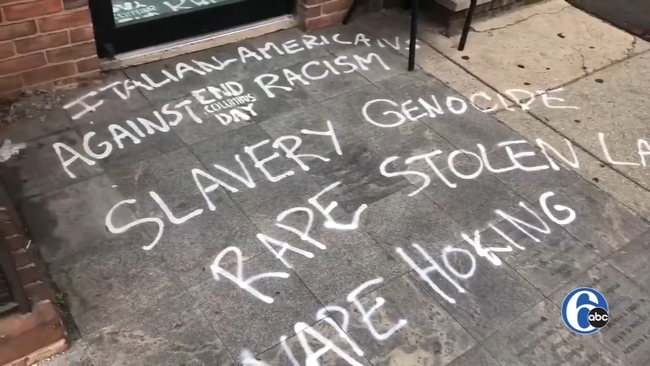 #ITALIAN-AMERICANS
AGAINST RACISM
END
COLUMBUS
DAY
SLAVERY GENOCIDE
RAPE STOLEN LA
VAPE HOKING
6 abc